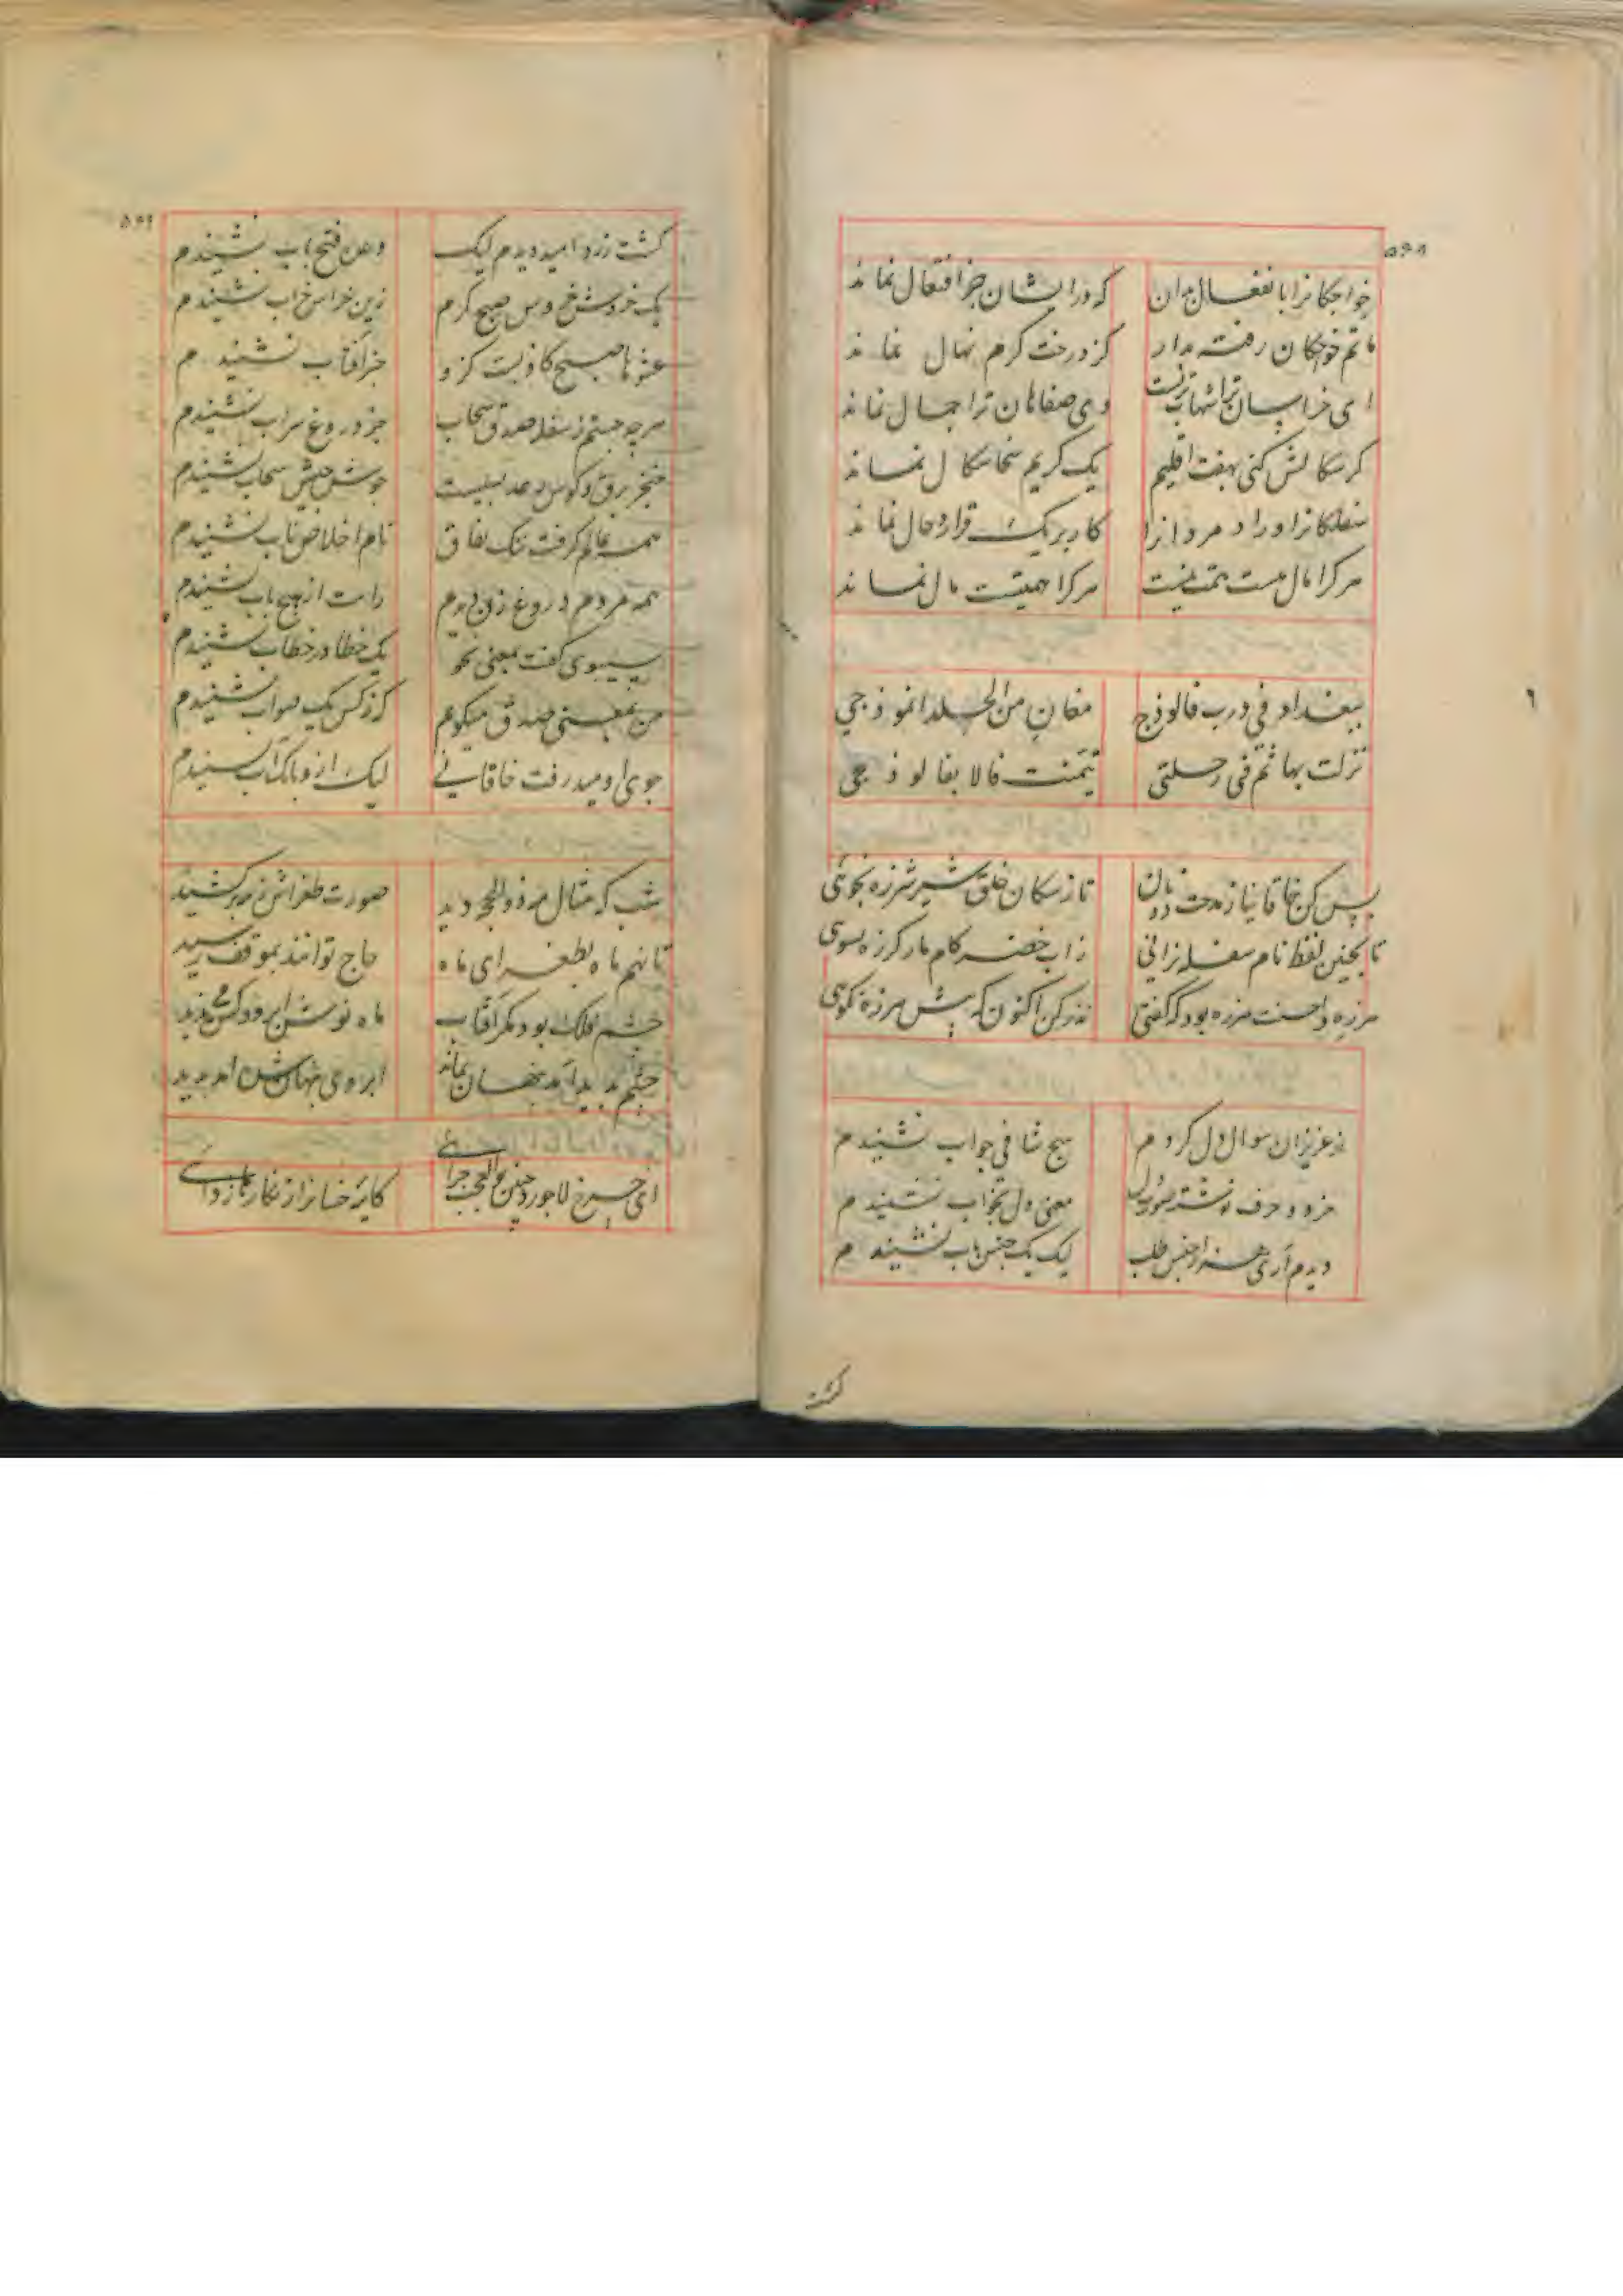 ۵۶۸
خواجکانرا بانفعال مدان که درایشان جز افتعال نماند
ماتم خوجکان رفته مدار کز درخت کرم نهال نماند
ای خراسان ترا شهاب نزیست وی صفاهان ترا جمال نماند
کر سکالش کنی بهفت اقلیم یک کریم سخا سکال نماند
سفلکانرا و راد مردانرا کار بر یک قرار و حال نماند
هرکرا مال هست همت نیست هرکرا همتست مال نماند
ببغداد فی درب فالوذج مغان من الخلد انموذجی
نزلت بها ثم فی رحلتی تیمنت فالا بفالوذجی
بس کن خاقانیا ز مدحت دونان تا ز سکان خلق شیر شرزه نجوئی
تا بچنین لفظ نام سفله نرانی زاب خضر کام مار کرزه نشوی
هرزه و احسنت هرزه بود که کفتی نذر کن اکنون که بیش هرزه نکوئی
از عزیزان سوال دل کردم هیچ شافی جواب نشنیدم
مزد و حرف نوشته صورت دل معنی دل بخواب نشنیدم
دیدم آری هزار جنس طلب لیک یک جنس یاب نشنیدم
کشت
کشت زرد امید دیدم لیک وعن فتح باب نشنیدم
یک خروش خروس صبح کرم زین خراس خراب نشنیدم
عشوها صبح کاذبست کزو جز آفتاب نشنیدم
هرچه جستم ز سفله صدق سحاب جز دروغ سراب نشنیدم
خنجر برق و کوس رعد بسیست جوش جیش سحاب نشنیدم
همه عالم کرفت ننک نفاق نام اخلاص ناب نشنیدم
همه مردم دروغ زن دیدم راست از هیچ باب نشنیدم
سیبوی کفت بمعنی نحو یک خطا در خطاب نشنیدم
من بمعنی صدق میکویم کز کس یک صواب نشنیدم
جوی او میدرفت خاقانی لیک ازو بانک آب نشنیدم
شب که مثال مه ذوالحجه دید صورت طغراش ز مه برکشید
تا نهم ماه بطغرای ماه حاج توانند بموقف رسید
چشم فلک بود مکر آفتاب ماه نوش ابرو و کس می ندید
چشم بدید آمد پنهان نماند ابروی پنهان شده آمد پدید
ای چرخ لاجوردی چنین بوالعجب چرائی کاینه خسانرا زنکار مازدائی